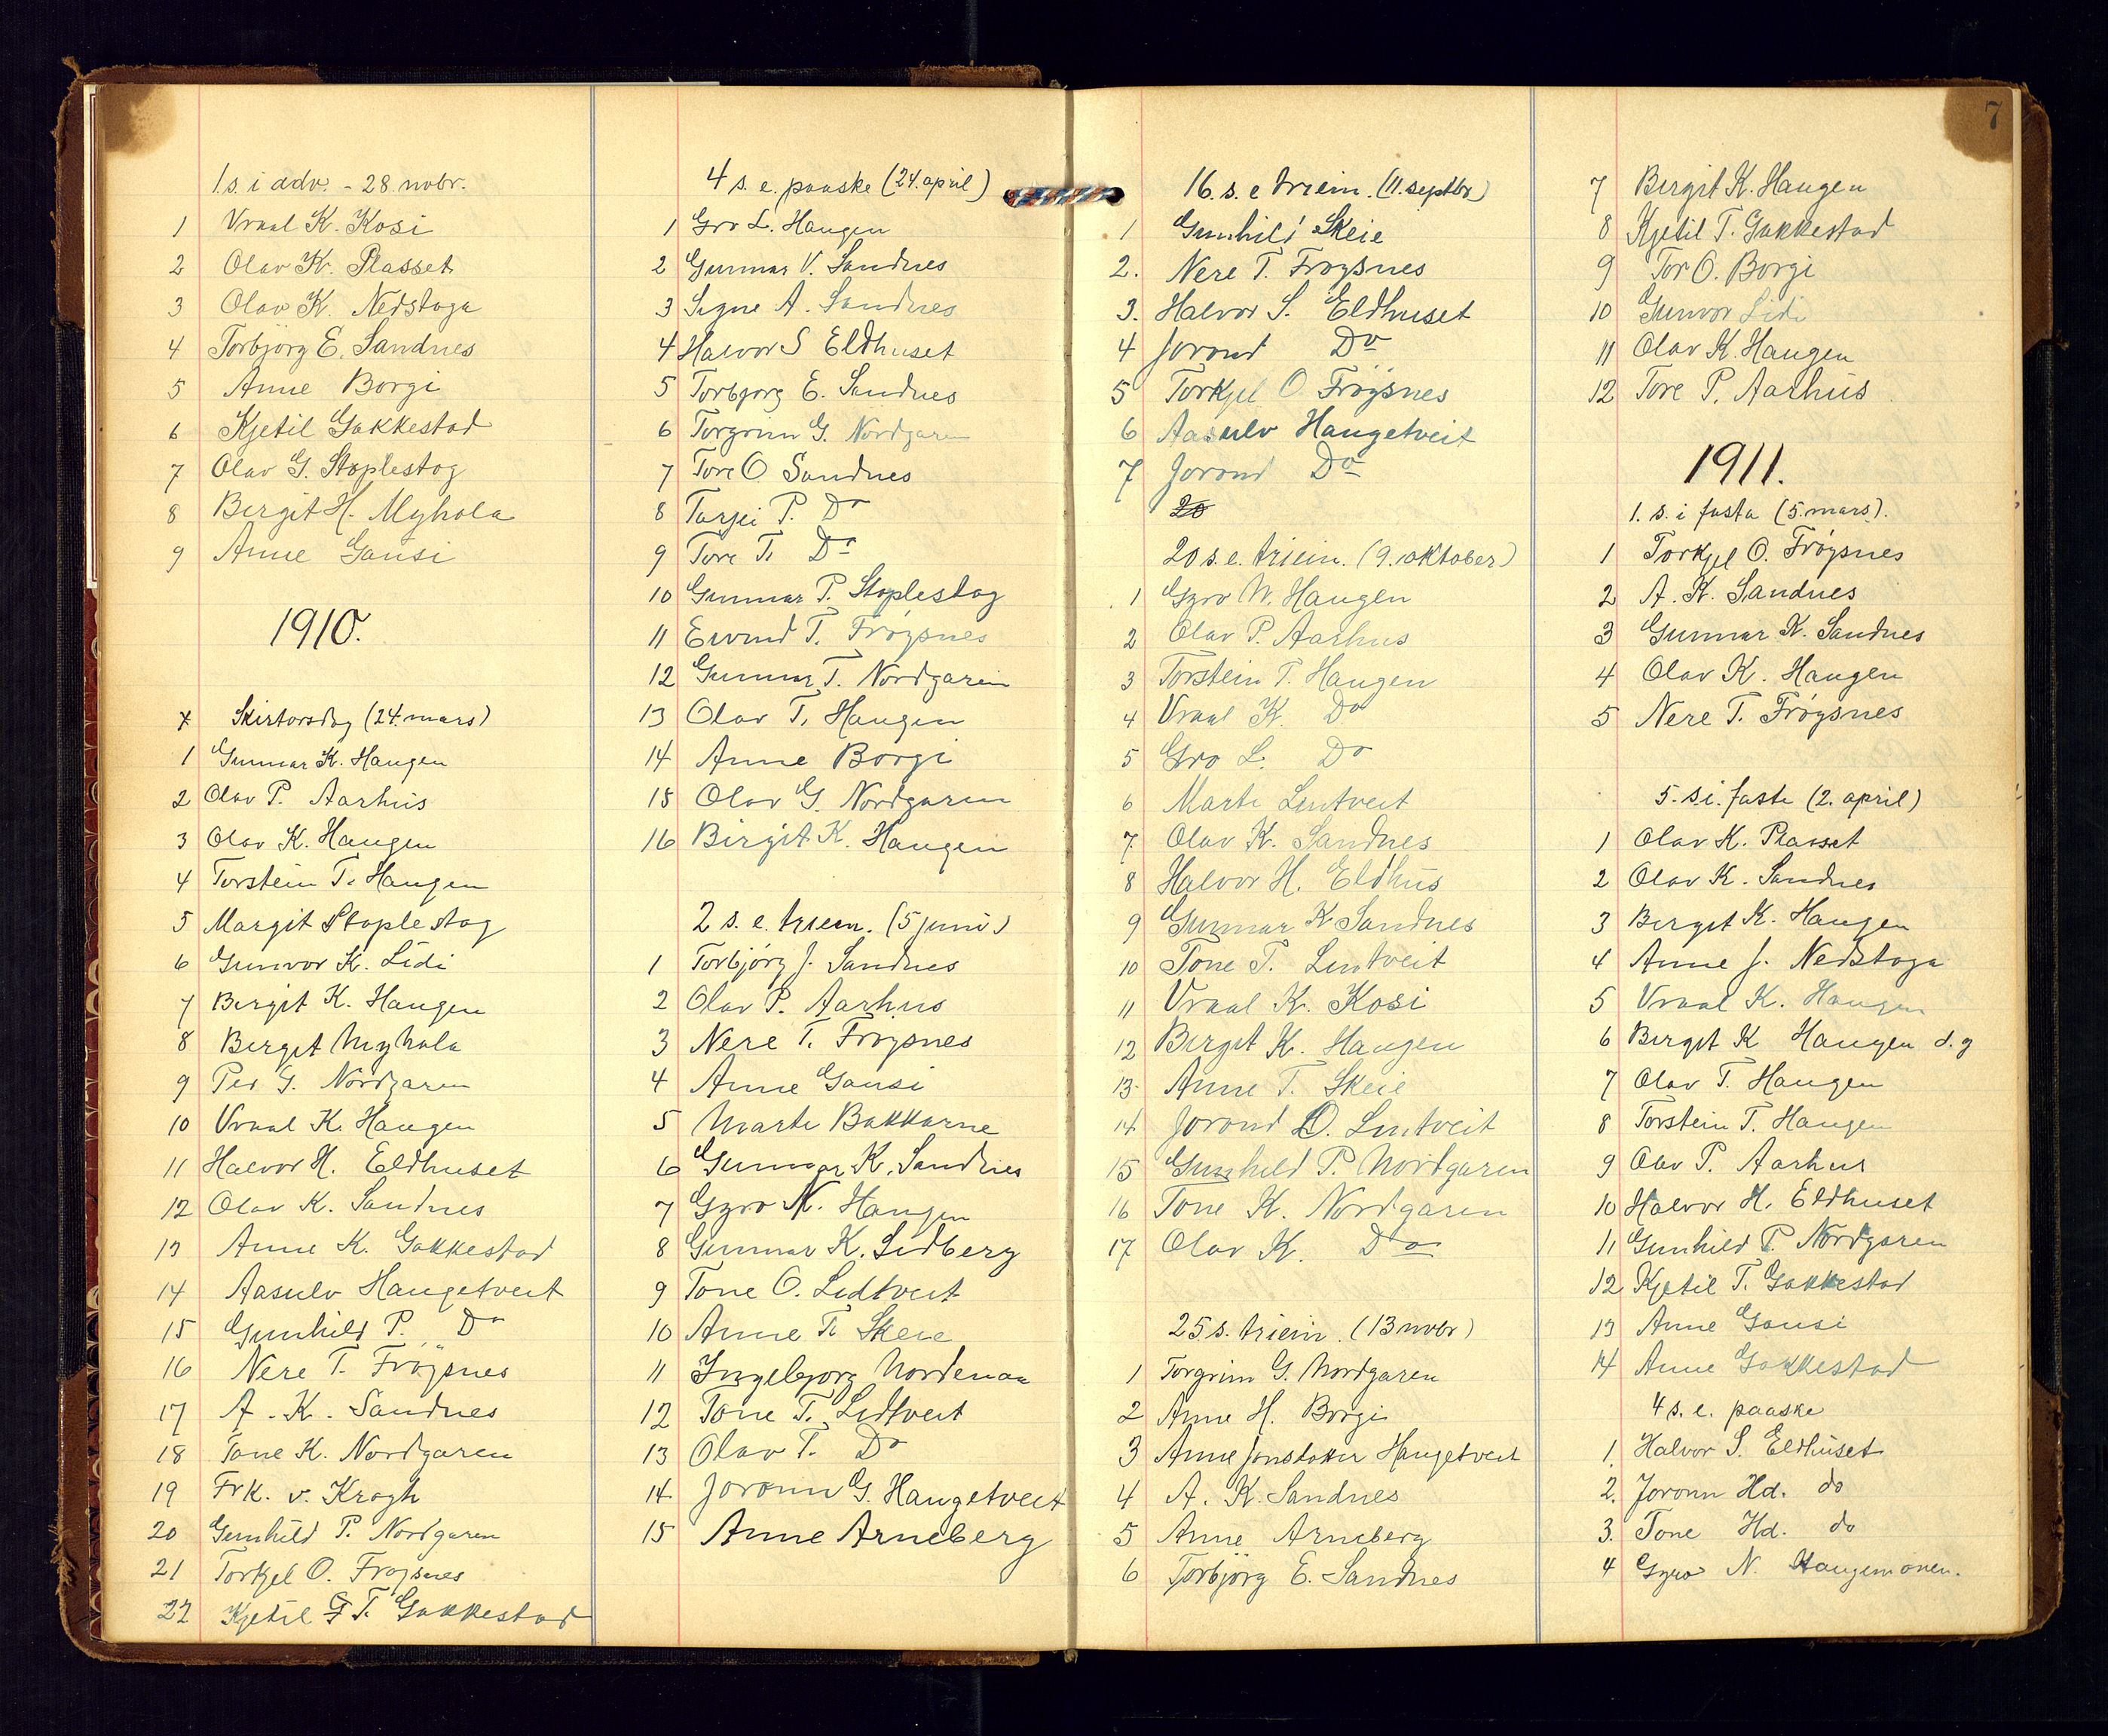 1. s. i adv. - 28. novbr.
1 Vraal K. Kosi
2 Olav K. Plasset
3 Olav K. Nedstoga
4 Torbjörg E. Sandnes
5 Anne Borgi
6 Kjetil Gakkestad
7 Olav G. Stoplestog
8 Bergit H. Myhola
9 Anne Gausi
1910.
x Skirtorsdag (24. mars)
1 Gunnar K. Haugen
2 Olav P. Aarhus
3 Olav K. Haugen
4 Torstein T. Haugen
5 Margit Stoplestog
6 Gunvor K. Lidi
7 Bergit K. Haugen
8 Bergit Myhola
9 Per G. Nordgaren
10 Vraal K. Haugen
11 Halvor H. Eldhuset
12 Olav K. Sandnes
13 Anne K. Gakkestad
14 Aasulv Haugetveit
15 Gunhild P. Do
16 Nere T. Fröysnes
17 A. K. Sandnes
18 Tone K. Nordgaren
19 Frk. v. Krogh
20 Gunhild P. Nordgaren
21 Torkjel O. Froysnes
22 Kjetil T. Gakkestad
4 s. e. paaske (24. april)
1 Gro L. Haugen
2 Gunnar V. Sandnes
3 Signe A. Sandnes
4 Halvor S Eldhuset
5 Torbjorg E. Sandnes
6 Torgrim G. Nordgaren
7 Tore O. Sandnes
8 Tarjei P. Do
9 Tore T. Do
10 Gunnar P. Stoplestog
11 Eivind T. Fröysnes
12 Gunnar T. Nordgaren
13 Olav T. Haugen
14 Anne Borgi
15 Olav G. Nordgaren
16 Birgit K. Haugen
2 s. e. triein. (5 juni)
1 Torbjörg J. Sandnes
2 Olav P. Aarhus
3 Nere T. Froysnes
4 Anne Gausi
5 Marte Bakkarne
6 Gunnar K. Sandnes
7 Gyro N. Haugen
8 Gunnar K. Lidberg
9 Tone O. Lidtveit
10 Anne T. Skeie
11 Ingebjorg Nordenaa
12 Tone T. Lidtveit
13 Olav T. Do
14 Joronn G. Haugetveit
15 Anne Arneberg
16. s. e triein. (11. septbr)
1 Gunhild Skeie
2. Nere T. Froysnes
3. Halvor S. Eldhuset
4 Jorond Do
5 Torkjel O. Fröysnes
6 Aasulv Haugetveit
7 Jorond Do
20
20 s. e. triein. (9. oktober)
1 Gyro N. Haugen
2 Olav P. Aarhus
3 Torstein T. Haugen
4 Vraal K. Do
5 Gro L. Do
6 Marte Lintveit
7. Olav K. Sandnes
8 Halvor H. Eldhus
9 Gunnar K Sandnes
10 Tone T. Lintveit
11 Vraal K. Kosi
12 Bergit K. Haugen
13. Anne T. Skeie
14. Jorond O. Lintveit
15 Gunhild P. Nordgaren
16 Tone K. Nordgaren
17 Olav K. Do
25 s. triein. (13 novbr)
1 Torgrim G. Nordgaren
2 Anne H. Borgi
3 Anne Jonsdotter Haugetveit
4 A. K. Sandnes
5 Anne Arneberg
6 Torbjörg E. Sandnes
7
7 Bergit K. Haugen
8 Kjetil T. Gakkestad
9 Tor O. Borgi
10 Gunvor Lidi
11 Olav K. Haugen
12 Tore P. Aarhus
1911.
1. s. i fasta (5. mars).
1 Torkjel O. Fröysnes
2 A. K. Sandnes
3 Gunnar K. Sandnes
4 Olav K. Haugen
5 Nere T. Fröysnes
5. s. i. faste (2. april)
1 Olav K. Plasset
2 Olav K. Sandnes
3 Bergit K. Haugen
4 Anne J. Nedstoga
5 Vraal K. Haugen
6 Bergit K Haugen d. y
7 Olav T. Haugen
8 Torstein T. Haugen
9 Olav P. Aarhus
10 Halvor H. Eldhuset
11 Gunhild P. Nordgaren
12 Kjetil T. Gakkestad
13 Anne Gausi
14 Anne Gakkestad
4 s. e. paaske
1. Halvor S. Eldhuset
2. Joronn Hd. do
3. Tone Hd. do
4 Gyro N. Haugemonen.